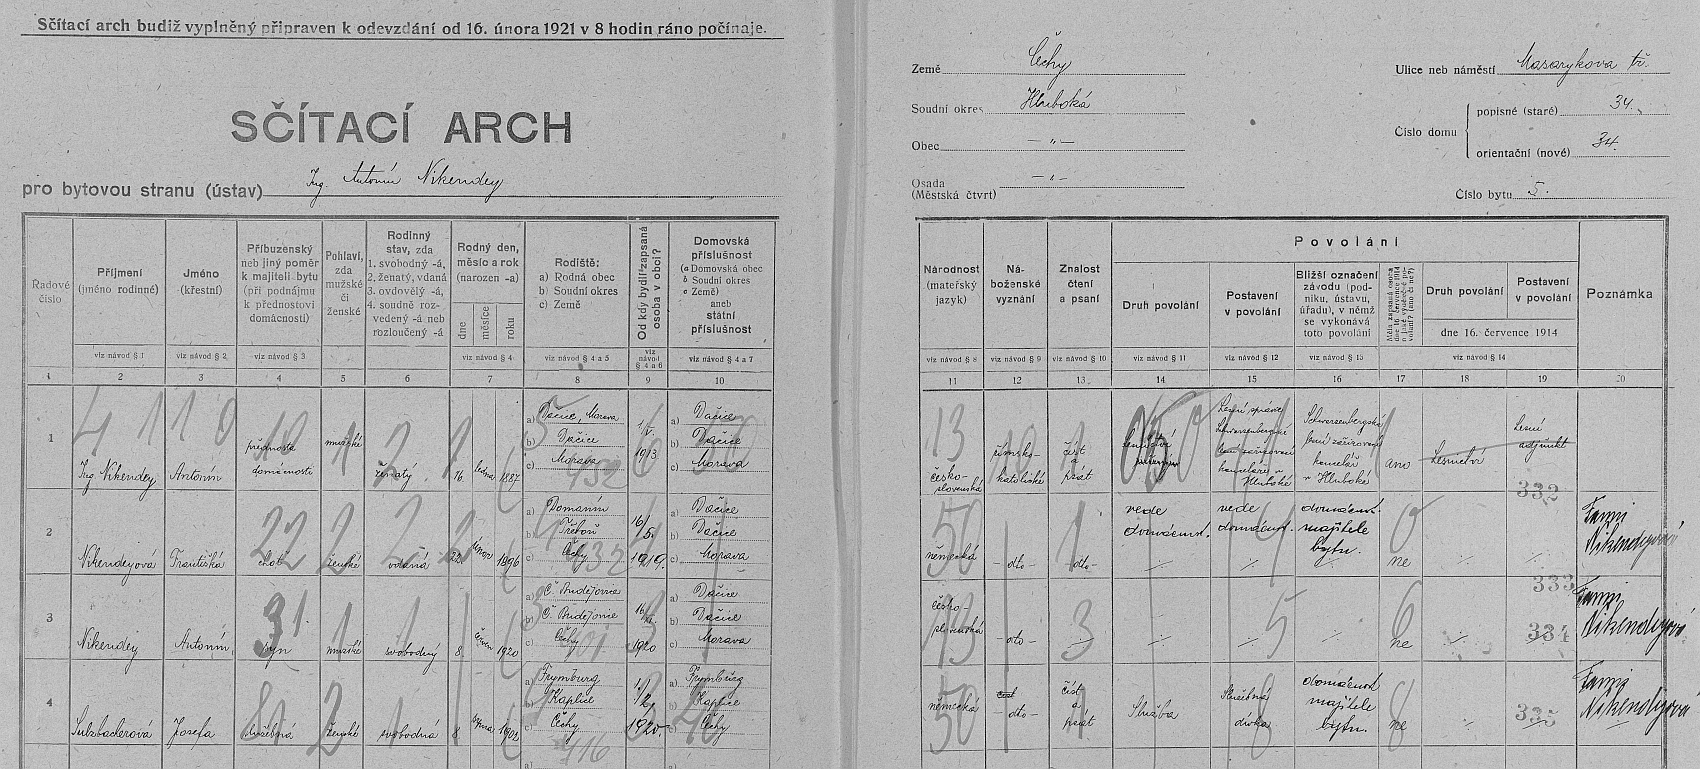 Sčítací arch budiž vyplněný připraven k odevzdání od 16. února 1921 v 8 hodin ráno počínaje.
SČÍTACÍ ARCH
pro bytovou stranu (ústav) Ing. Antonín Nikendey
Země Čechy
Soudní okres Hluboká
Obec — „ —
Osada — „ —
(Městská čtvrť)
Ulice neb náměstí Masarykova tř.
Číslo domu
popisné (staré) 34.
orientační (nové) 34.
Číslo bytu 5.
Řadové číslo
Příjmení (jméno rodinné)
Jméno (křestní)
Příbuzenský neb jiný poměr k majiteli bytu (při podnájmu k přednostovi domácnosti)
Pohlaví, zda mužské či ženské
Rodinný stav, zda 1. svobodný -á, 2. ženatý, vdaná 3. ovdovělý -á, 4. soudně rozvedený -á neb rozloučený -á
Rodný den, měsíc a rok (narozen -a)
dne měsíce roku
Rodiště:
a) Rodná obec
b) Soudní okres
c) Země
Od kdy bydlí zapsaná osoba v obci?
Domovská příslušnost
(a Domovská obec
b Soudní okres
c Země)
aneb státní příslušnost
Národnost (mateřský jazyk)
Náboženské vyznání
Znalost čtení a psaní
Povolání
Druh povolání
Postavení v povolání
Bližší označení závodu (podniku, ústavu, úřadu), v němž se vykonává toto povolání
Měla zapsaná osoba dne 16. července 1914 jiné povolání? (ano či ne?)
Druh povolání
Postavení v povolání
dne 16. července 1914
Poznámka
viz návod § 1
viz návod § 2
viz návod § 3
viz návod § 4
viz návod § 4 a 5
viz návod § 4 a 6
viz návod § 4 a 7
viz návod § 8
viz návod § 9
viz návod § 10
viz návod § 11
viz návod § 12
viz návod § 13
viz návod § 14
1 2 3 4 5 6 7 8 9 10
11 12 13 14 15 16 17 18 19 20
1 Ing. Nikendey Antonín přednosta domácnosti mužské ženatý 16. ledna 1887
a) Dačice, Morava
b) Dačice
c) Morava
a) Dačice
b) Dačice
c) Morava
československá římsko-katolické číst a psát
Lesní správce Schwarzenberské kanceláře v Hluboké
Schwarzenberská kancelář v Hluboké
ano Lesnictví Lesní adjunkt
332
2 Nikendeyová Františka choť ženské vdaná 22 února 1896
a) Domanín
b) Třeboň
c) Čechy
16/5. 1919.
a) Dačice
b) Dačice
c) Morava
německá — dto — — dto —
vede domácnost. vede domácnost. domácnost majitele bytu. ne
Fanni Nikendeyová
333
3 Nikendey Antonín syn mužské svobodný 8 1920
a) Č. Budějovice
b) Č. Budějovice
c) Čechy
1920
a) Dačice
b) Dačice
c) Morava
československá — dto —
ne
334
Fanni Nikendeyová
4 Sulzbacherová Josefa služebná ženské svobodná 8 srpna 1902
a) Frymburg
b) Kaplice
c) Čechy
1/2 1920.
a) Frymburg
b) Kaplice
c) Čechy
německá — dto — číst a psát
Služba Služebná dívka domácnost majitele bytu. ne
335
Fanni Nikendeyová